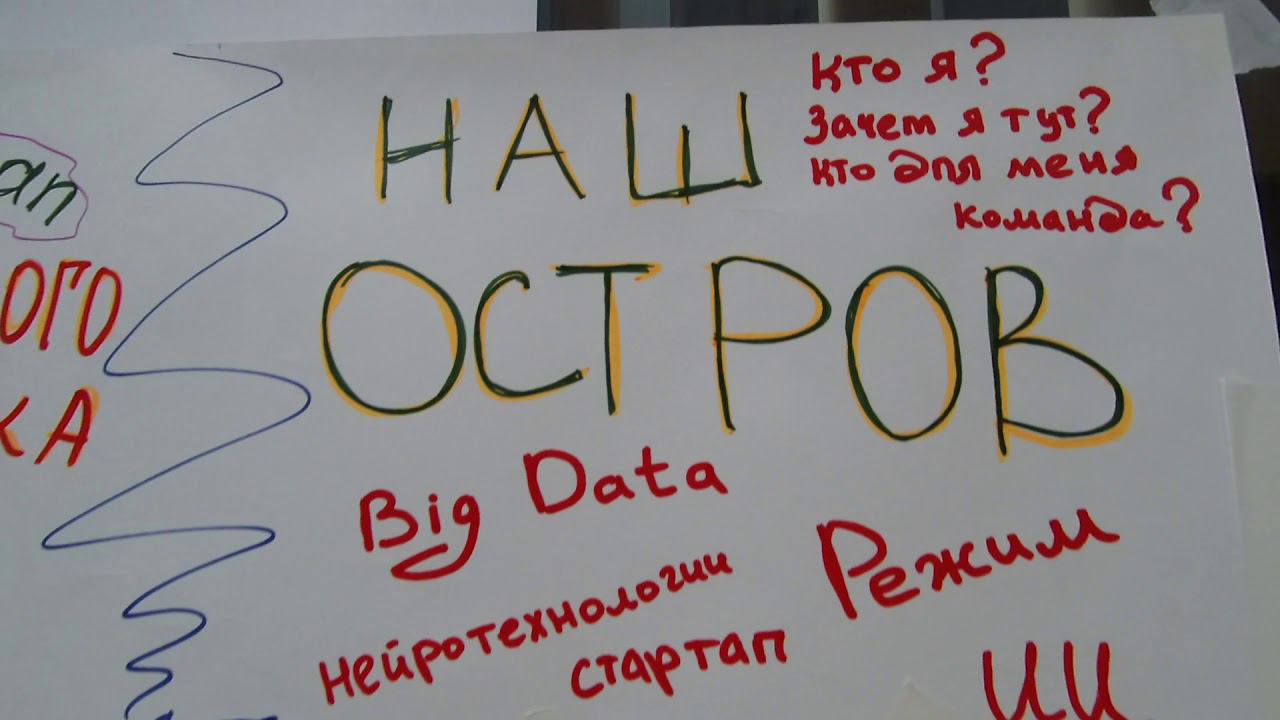 НАШ
ОСТРОВ
Кто я?
Зачем я тут?
Кто для меня
команда?
Big Data
нейротехнологии
стартап
Режим
ИИ
ап
ОГО
КА